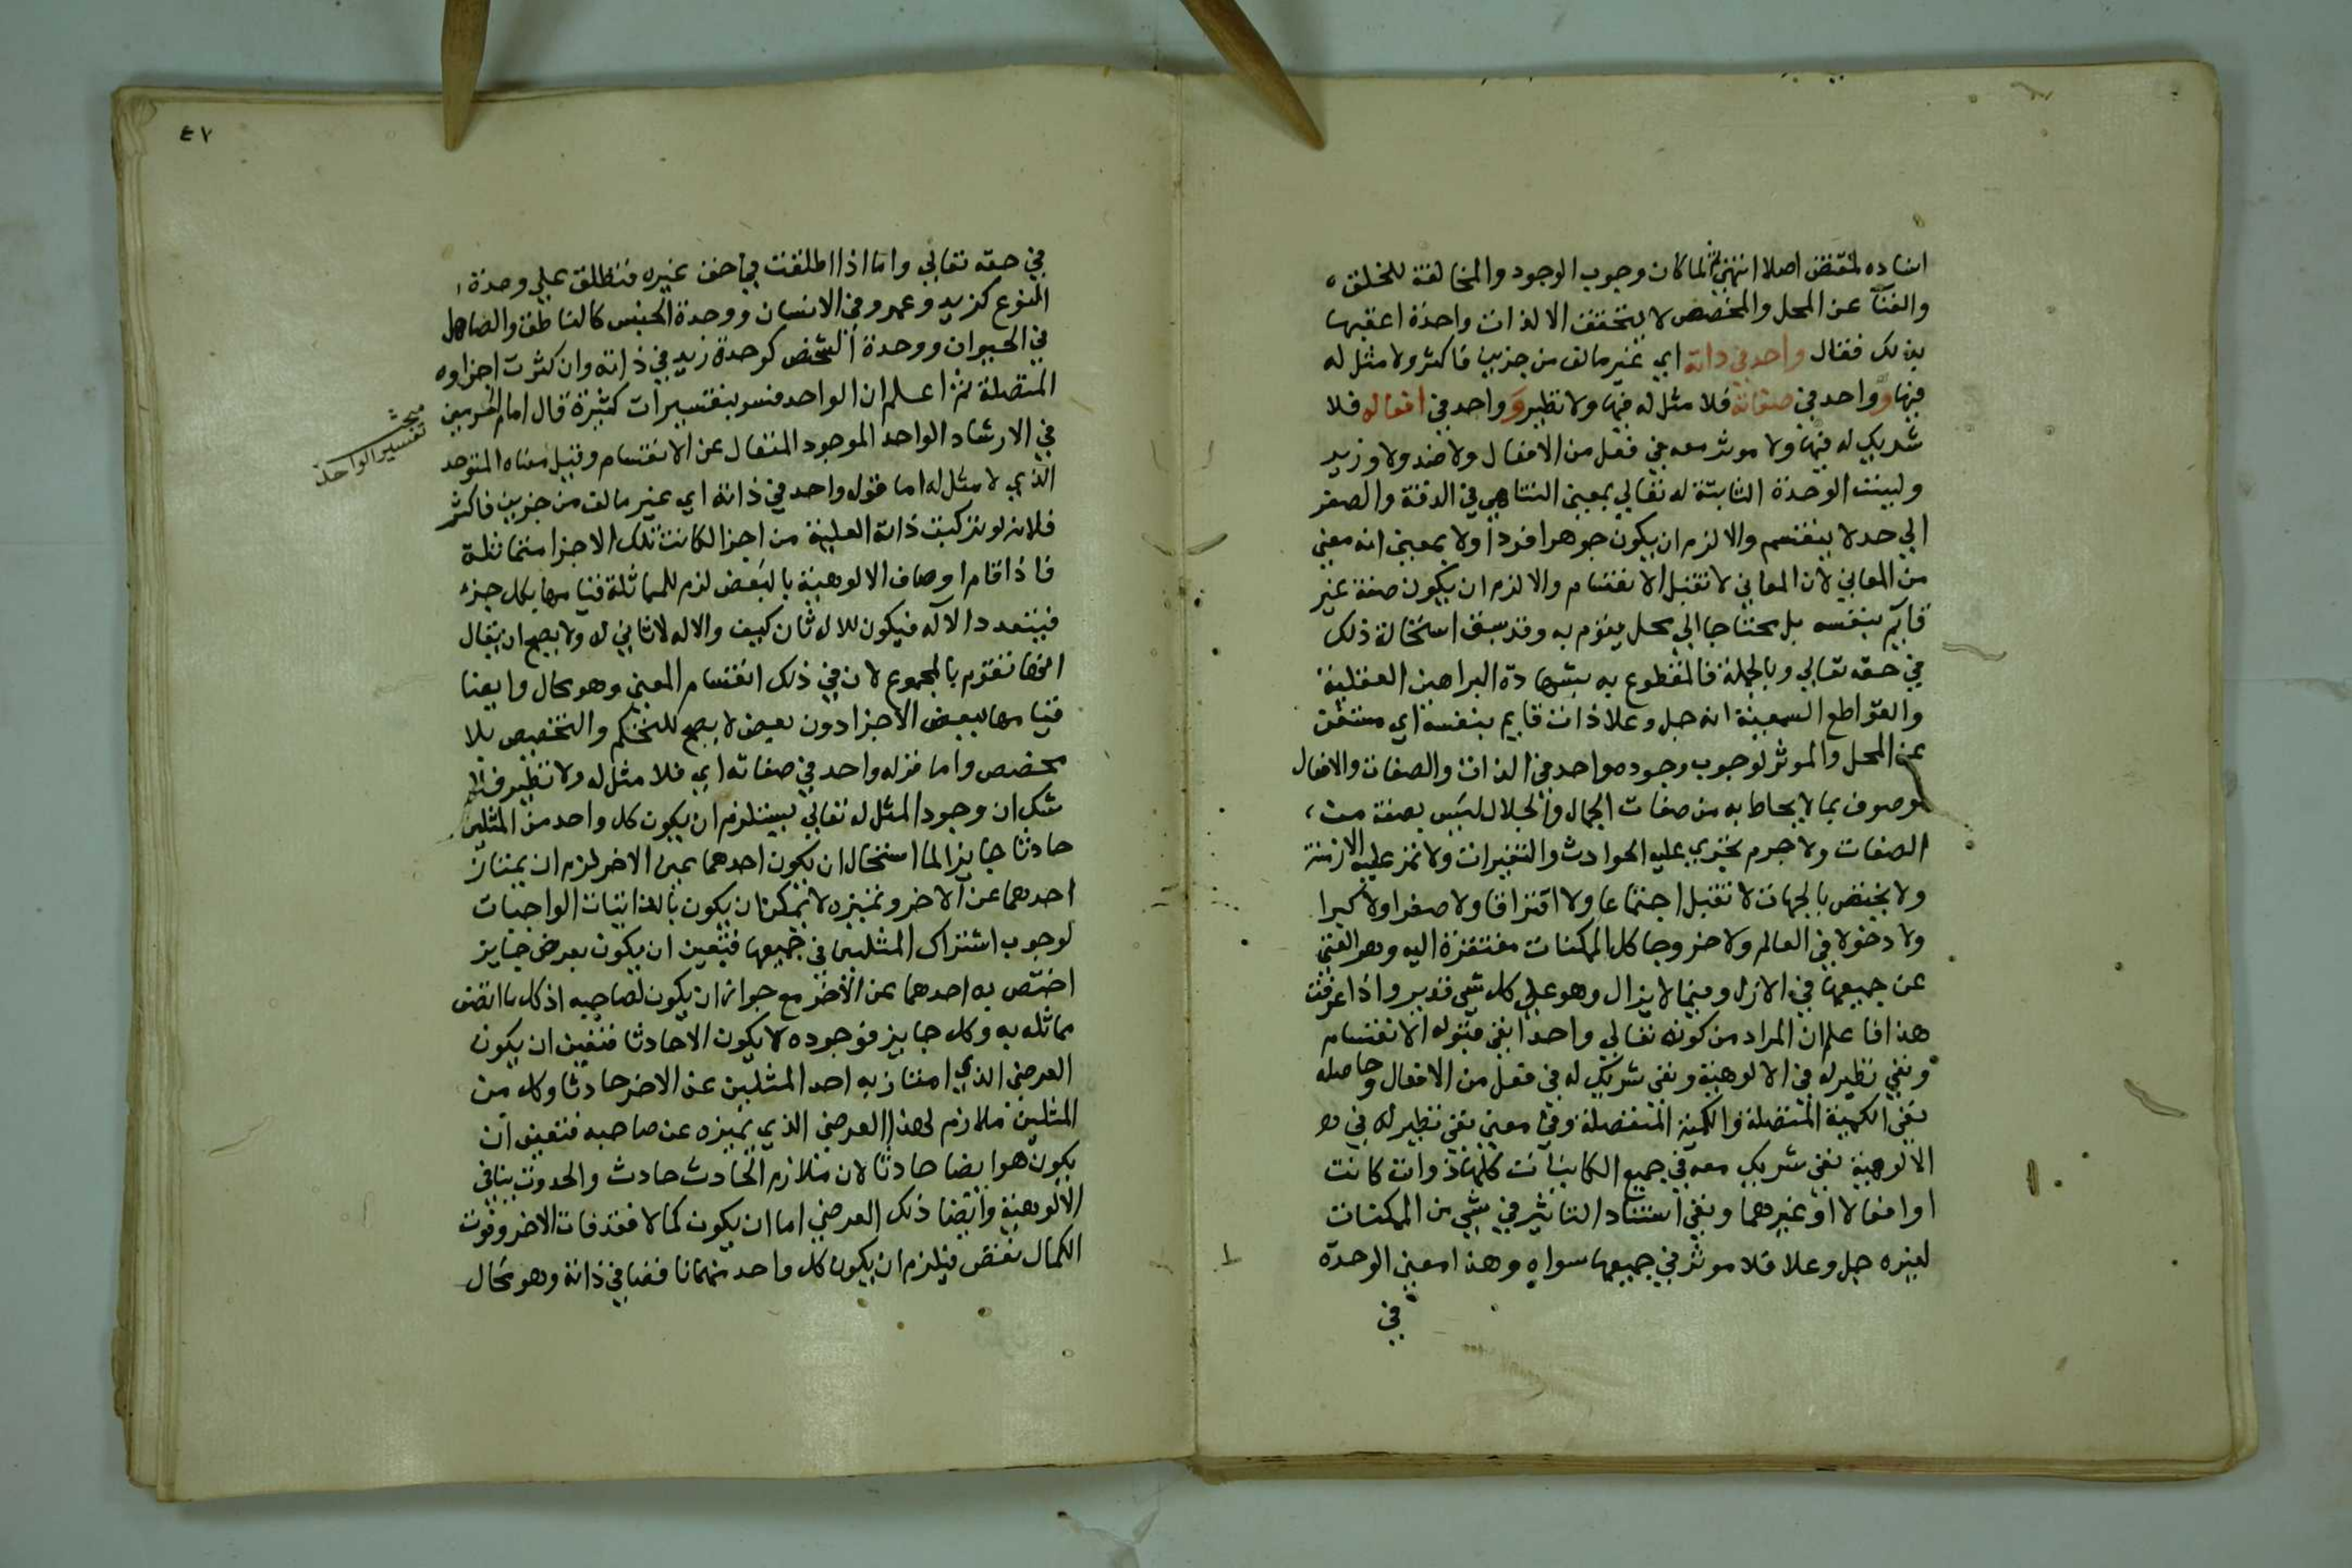 اسناده لمقتض اصلا انتهى ثم لما كان وجوب الوجود والمخالفة للخلق
والغنآ عن المحل والمخصص لا يتحقق الا لذات واحدة اعقبها
بذلك فقال واحد في ذاته اي غير مالف من جزين فاكثر ولا مثل له
فيها وواحد في صفاته فلا مثل له فيها ولا نظير وواحد في افعاله فلا
شريك له فيها ولا موثر معه في فعل من الافعال ولا ضد ولا وزير
وليست الوحدة الثابتة له تعالي بمعني التناهي في الدقة والصغر
الي حد لا ينقسم والا لزم ان يكون جوهرا فردا ولا بمعني انه معني
من المعاني لان المعاني لا تقبل الانقسام والا لزم ان يكون صفة غير
قايم بنفسه بل محتاجا الي محل يقوم به وقد سبق استحالة ذلك
في حقه تعالي وبالجملة فالمقطوع به بشهادة البراهين العقلية
والقواطع السمعية انه جل وعلا ذات قايم بنفسه اي مستغن
عن المحل والموثر لوجوب وجوده واحد في الذات والصفات والافعال
موصوف بما لا يحاط به من صفات الجمال والجلال ليس بصفة من
الصفات ولا جرم يجري عليه الحوادث والتغيرات ولا تمر عليه الازمنة
ولا يختص بالجهات لا تقبل اجتماعا ولا افتراقا ولا صغرا ولا كبرا
ولا دخولا في العالم ولا خروجا كل الممكنات مفتقرة اليه وهو الغني
عن جميعها في الازل وفيما لا يزال وهو علي كل شي قدير واذا عرفت
هذا فاعلم ان المراد من كونه تعالي واحدا نفي قبوله الانقسام
ونفي نظير له في الالوهية ونفي شريك له في فعل من الافعال وحاصله
نفي الكمية المتصلة والكمية المنفصلة وفي معني نفي نظير له في
الالوهية نفي شريك معه في جميع الكاينات كلها ذوات كانت
او افعالا او غيرهما ونفي استناد التاثير في شي من الممكنات
لغيره جل وعلا فلا موثر في جميعها سواه وهذا معني الوحدة
في
٤٧
في حقه تعالي واما اذا اطلقت في حق غيره فتطلق علي وحدة
النوع كزيد وعمرو في الانسان ووحدة الجنس كالناطق والصاهل
في الحيوان ووحدة الشخص كوحدة زيد في ذاته وان كثرت اجزاوه
المتصلة ثم اعلم ان الواحد فسر بتفسيرات كثيرة قال امام الحرمين
في الارشاد الواحد الموجود المتعال عن الانقسام وقيل معناه المتوحد
مبحث
تفسير الواحد
الذي لا مثل له اما قوله واحد في ذاته اي غير مالف من جزين فاكثر
فلانه لو تركبت ذاته العلية من اجزا لكانت تلك الاجزا متماثلة
فاذا قام اوصاف الالوهية بالبعض لزم للمماثلة قيامها بكل جزء
فيتعدد الآله فيكون للاله ثان كيف والاله لا ثاني له ولا يصح ان يقال
انها تقوم بالمجموع لان في ذلك انقسام المعني وهو محال وايضا
قيامها ببعض الاجزا دون بعض لا يصح للتحكم والتخصيص بلا
مخصص واما قوله واحد في صفاته اي فلا مثل له ولا نظير
شك ان وجود المثل له تعالي يستلزم ان يكون كل واحد من المثلين
حادثا جايزا لما استحال ان يكون احدهما عين الاخر لزم ان يمتاز
احدهما عن الاخر وتميزه لا يمكن ان يكون بالذاتيات الواجبات
لوجوب اشتراك المثلين في جميعها فتعين ان يكون بعرض جايز
اختص به احدهما عن الاخر مع جواز ان يكون لصاحبه اذ كل ما اتصف
مماثله به وكل جايز فوجوده لا يكون الا حادثا فتعين ان يكون
العرض الذي امتاز به احد المثلين عن الاخر حادثا وكل من
المثلين ملازم لهذا العرض الذي تميزه عن صاحبه فتعين ان
يكون هو ايضا حادثا لان ملازم الحادث حادث والحدوث ينافي
الالوهية وايضا ذلك العرض اما ان يكون كمالا فقد فات الاخر وفوت
الكمال نقص فيلزم ان يكون كل واحد منهما ناقصا في ذاته وهو محال